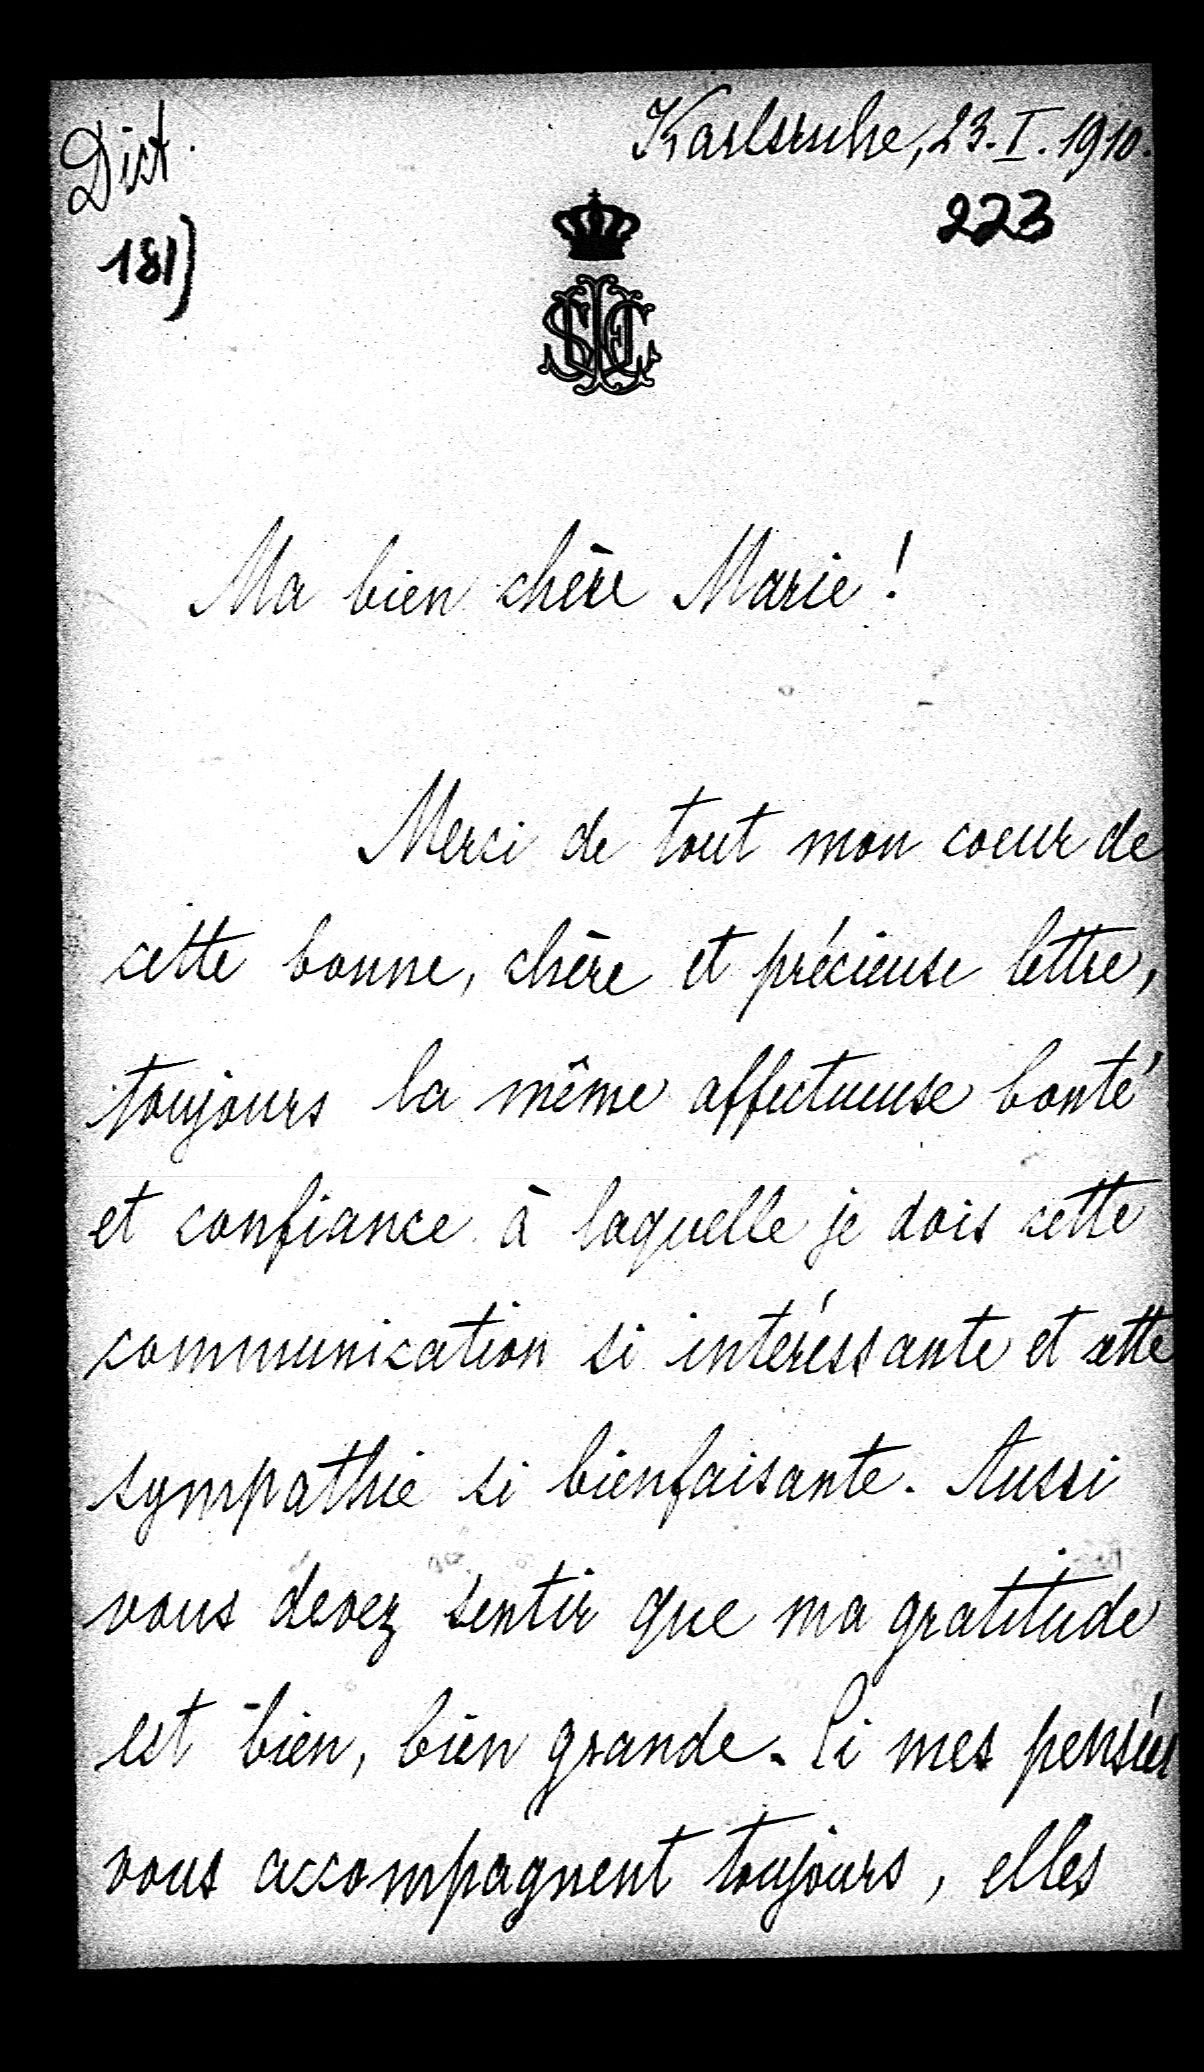 Dict.
Karlsruhe, 23.I.1910.
223
181)
Ma bien chère Marie!
Merci de tout mon coeur de
cette bonne, chère et précieuse lettre,
toujours la même affectueuse bonté
et confiance à laquelle je dois cette
communication si intéressante et cette
sympathie si bienfaisante. Aussi
vous devez sentir que ma gratitude
est bien, bien grande. Si mes pensées
vous accompagnent toujours, elles